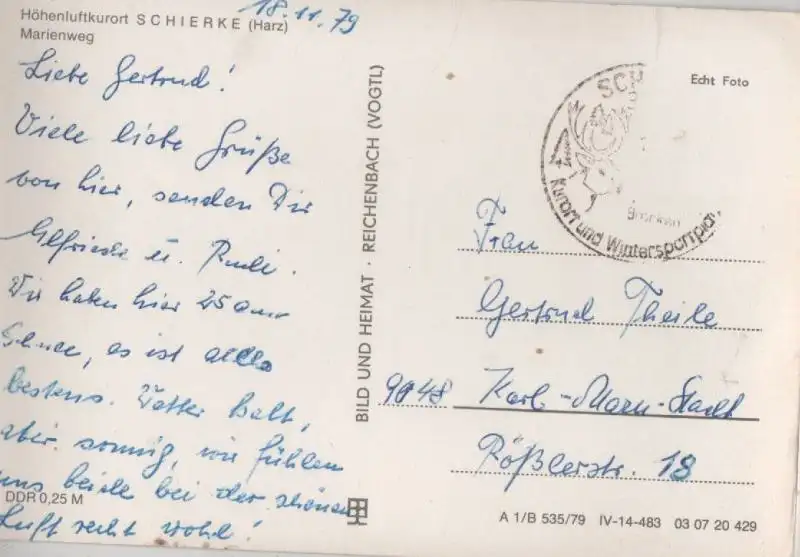 18.11.79
Höhenluftkurort SCHIERKE (Harz)
Marienweg
Liebe Gertrud!
Viele liebe Grüße
von hier, senden Dir
Elfriede u. Rudi.
Wir haben hier 25 cm
Schnee, es ist alles
bestens. Wetter kalt,
aber sonnig, wir fühlen
uns beide bei der schönen
Luft recht wohl!
DDR 0,25 M
BILD UND HEIMAT · REICHENBACH (VOGTL)
Echt Foto
SCH
Brocken
Kurort und Wintersportplatz
Frau
Gertrud Theile
9048 Karl-Marx-Stadt
Rößlerstr. 18
A 1/B 535/79 IV-14-483 03 07 20 429